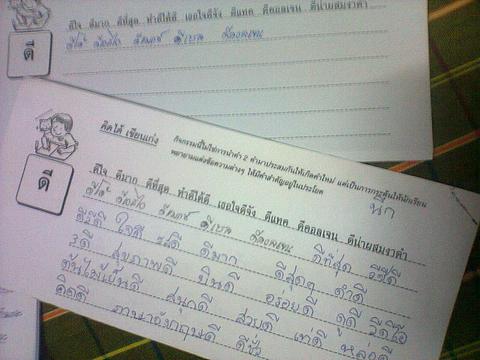 ดีใจ ดีมาก ดีที่สุด ทำดีได้ดี เธอใจดีจัง ดีแทค ดีคอลเจน ดีน่ายสมงาคำ
ดี
คิดได้ เขียนเก่ง
กิจกรรมนี้ไม่ใช่การนำคำ 2 คำมาประสมกันให้เกิดคำใหม่ แต่เป็นการกระตุ้นให้นักเรียน
พยายามแต่งข้อความต่างๆ ให้มีคำสำคัญอยู่ในประโยค
ดี
ดีใจ ดีมาก ดีที่สุด ทำดีได้ดี เธอใจดีจัง ดีแทค ดีคอลเจน ดีน่ายสมงาคำ
ดีที่สุด
ใจดี ดีมาก ดีสุดๆ ทำดี
สุขภาพดี ยินดี อร่อยดี ดูดี วีดีโอ
ต้นไม้เป็นดี สนุกดี สวยดี เท่ดี หล่อดี
คิดดี ภาษาอังกฤษดี ดีชั่ว